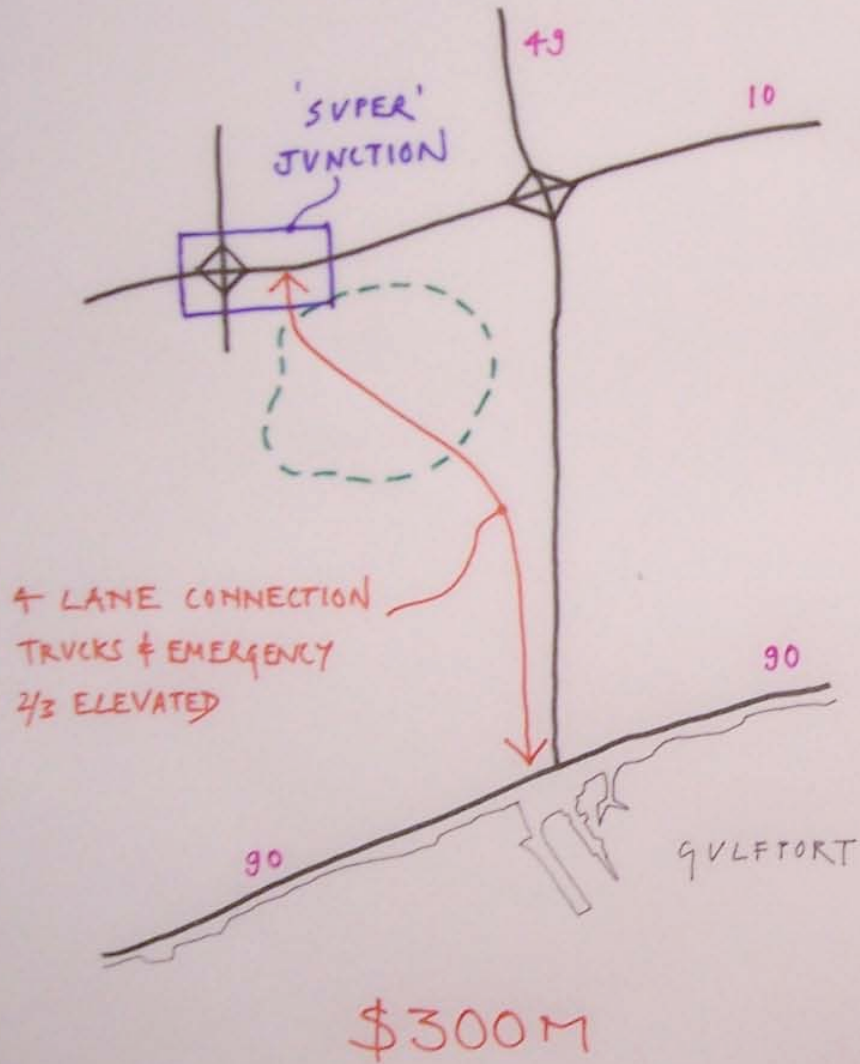 49
10
'SUPER'
JUNCTION
4 LANE CONNECTION
TRUCKS & EMERGENCY
2/3 ELEVATED
90
90
GULFPORT
$300M